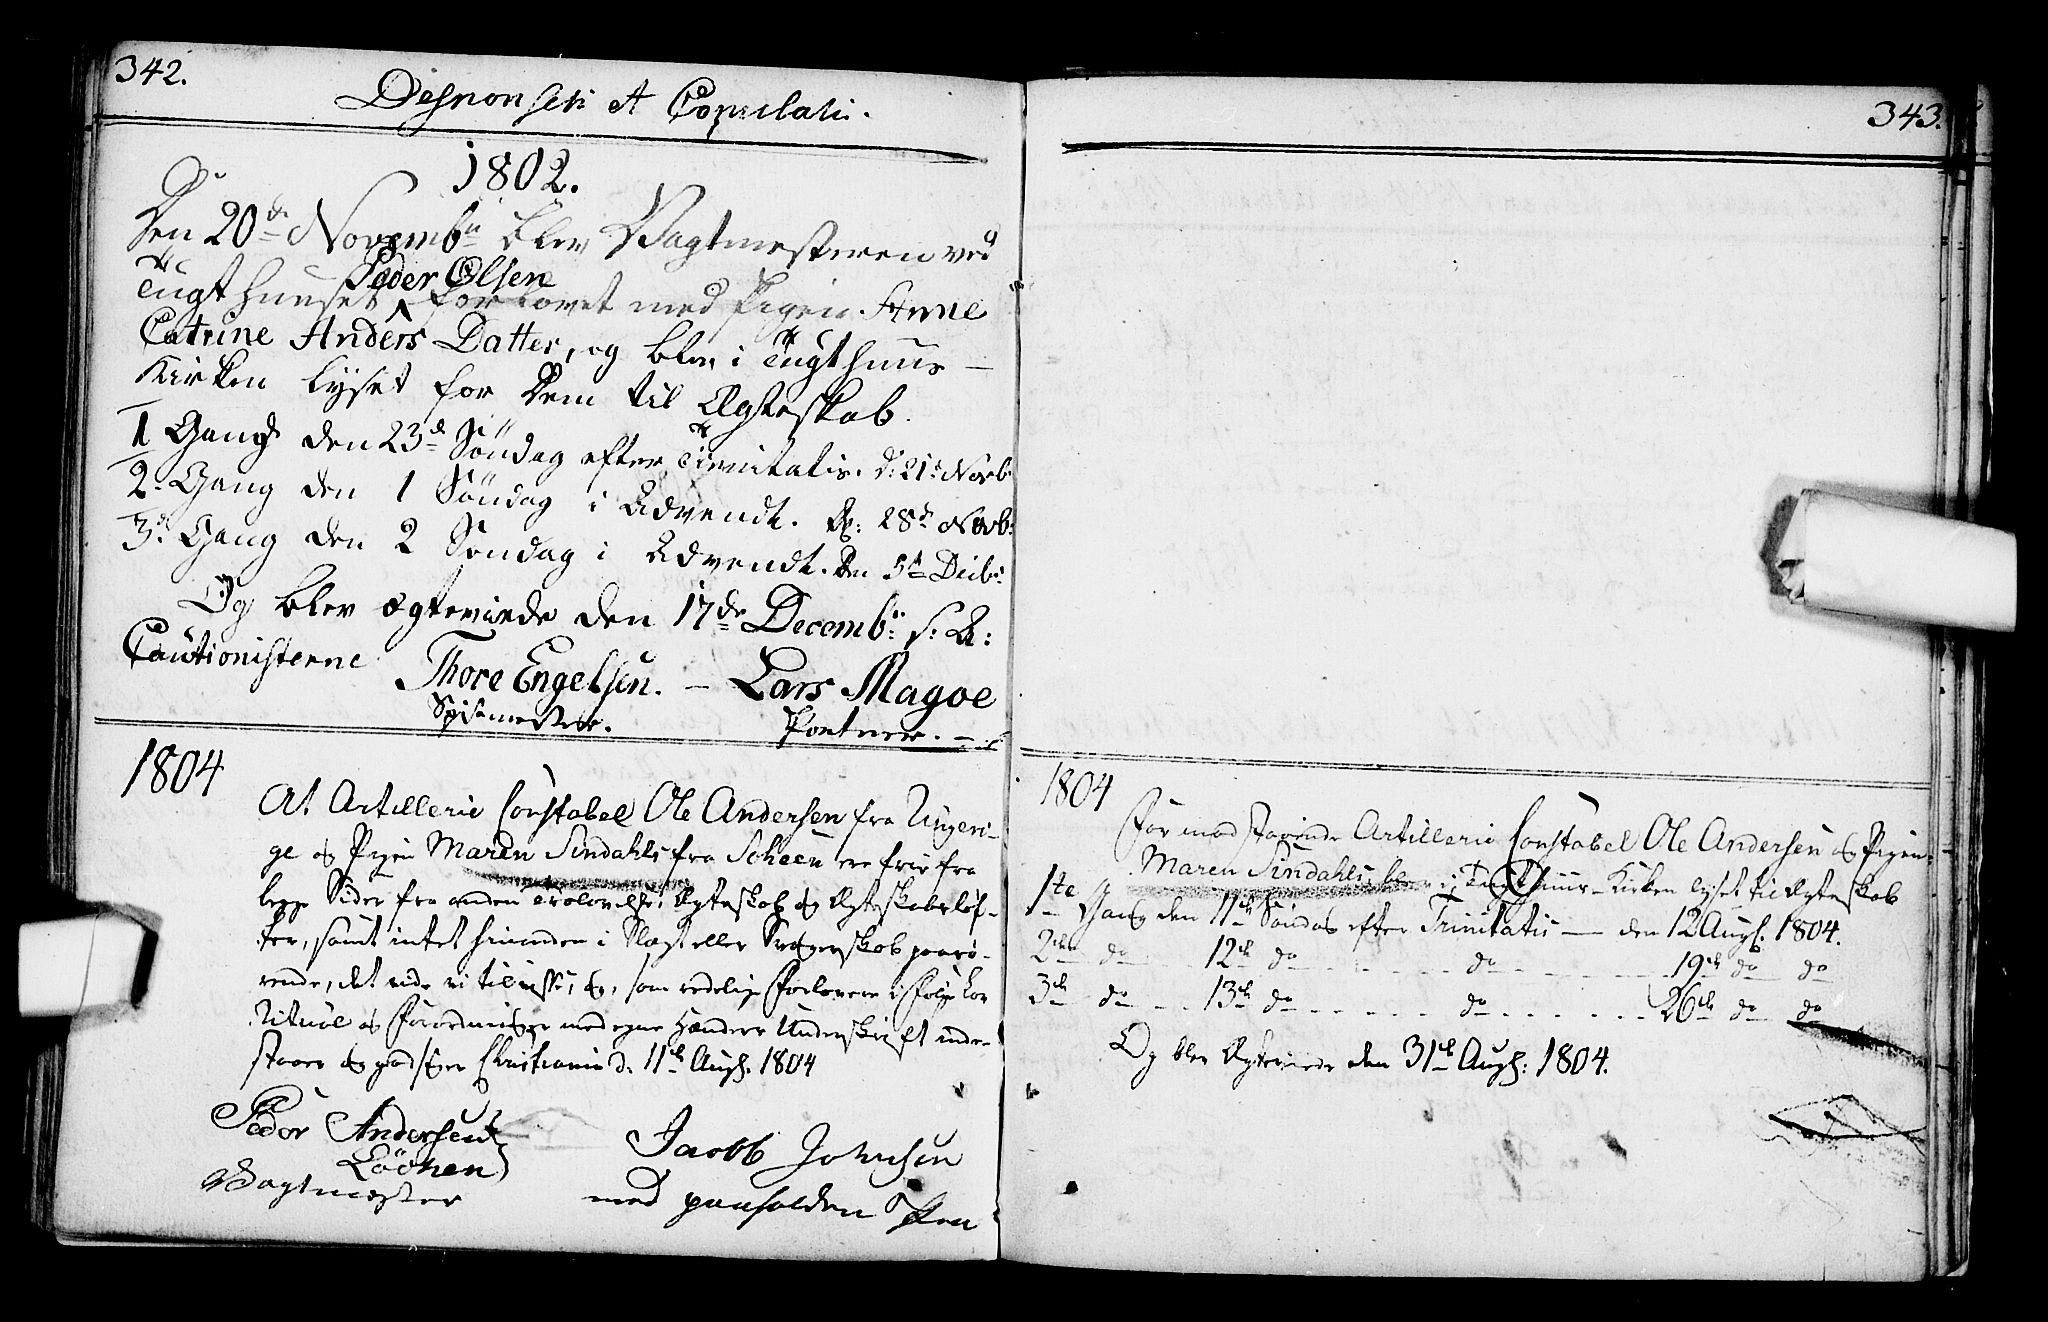 342.
Desponsati et Copulati.
1802.
Den 20de Novembr blev Vagtmesteren ved
Tugthuuset Peder Olsen forlovet med Pigen Anne
Catrine Anders Datter, og blev i Tugthuus-
Kirken lyset for Dem til Ægteskab.
1 Gang den 23de Söndag efter Trinitatis. d: 21de Novb:
2. Gang den 1 Söndag i Advendt. D: 28de Novb:
3de Gang den 2 Söndag i Advendt. Den 5te Decbr:
Og blev ægteviede den 17de Decembr: s: A:
Cautionisterne Thore Engelsen. - Lars Magoe
Spisemester. Portner.
1804
At Artillerie Constabel Ole Andersen fra Ringeri-
ge og Pigen Maren Sindahls fra Scheen ere frie fra
begge Sider fra anden Trolovelse, Ægteskab og Ægteskabsløf-
ter, samt intet hinanden i Slægt eller Svogerskab paarö-
rende, det vide vi til visse, og, som redelige Forlovere i Følge Lov
Ritual og Forordninger med egne Hænders Underskrift inde-
staaer og godsiger Christiania d. 11te Augs. 1804
Peder Andersen
Löchen
Vagtmester
Jacob Johnsen
med paaholden Pen
343.
1804
For modstaaende Artillerie Constabel Ole Andersen og Pigen
Maren Sindahls blev i Tugthuus-Kirken lyset til Ægteskab
1te Gang den 11te Söndag efter Trinitatis — den 12 Augs. 1804.
2den do 12te do do 19de do do
3de do 13de do do 26de do do
Og blev Ægteviede den 31te Augs: 1804.